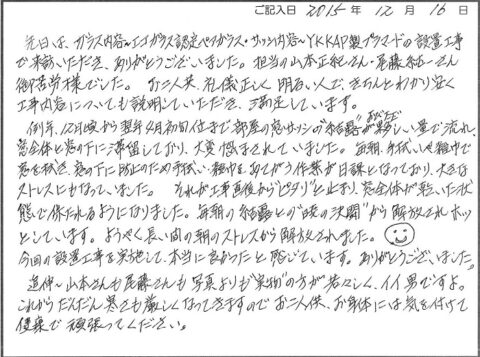 ご記入日 2015年 12月 16日
先日は、ガラス内容~エコガラス認定ペアガラス・サッシ内容~YKKAP製プラマードの設置工事
で来訪いただき、ありがとうございました。担当の山本正紀さん・尾藤 さん
御苦労様でした。お二人共、礼儀正しく明るい人で、きちんとわかり安く
工事内容についても説明していただき、満足しています。
例年、12月頃から翌年4月初旬位まで部屋の窓サッシの"結露"が夥しい量で流れ、
窓全体と窓の下に滞留しており、大変悩まされていました。毎朝、手拭いや雑巾で
窓を拭き、窓の下に防止のため手拭い・雑巾をあてがう作業が日課となっており、大きな
ストレスにもなっていました。それが工事直後から"ピタリ"と止まり、窓全体が乾いた状
態で保たれるようになりました。毎朝の"結露との"暁の決闘"から解放されホッ
としています。ようやく長い間の朝のストレスから解放されました。
今回の設置工事を実施して、本当に良かったと感じています。ありがとうございました。
追伸~山本さんも尾藤さんも写真よりも"実物"の方が若々しく、イイ男ですよ。
これからだんだん寒さも厳しくなってきますのでお二人供、お身体には気を付けて
健康で頑張ってください。